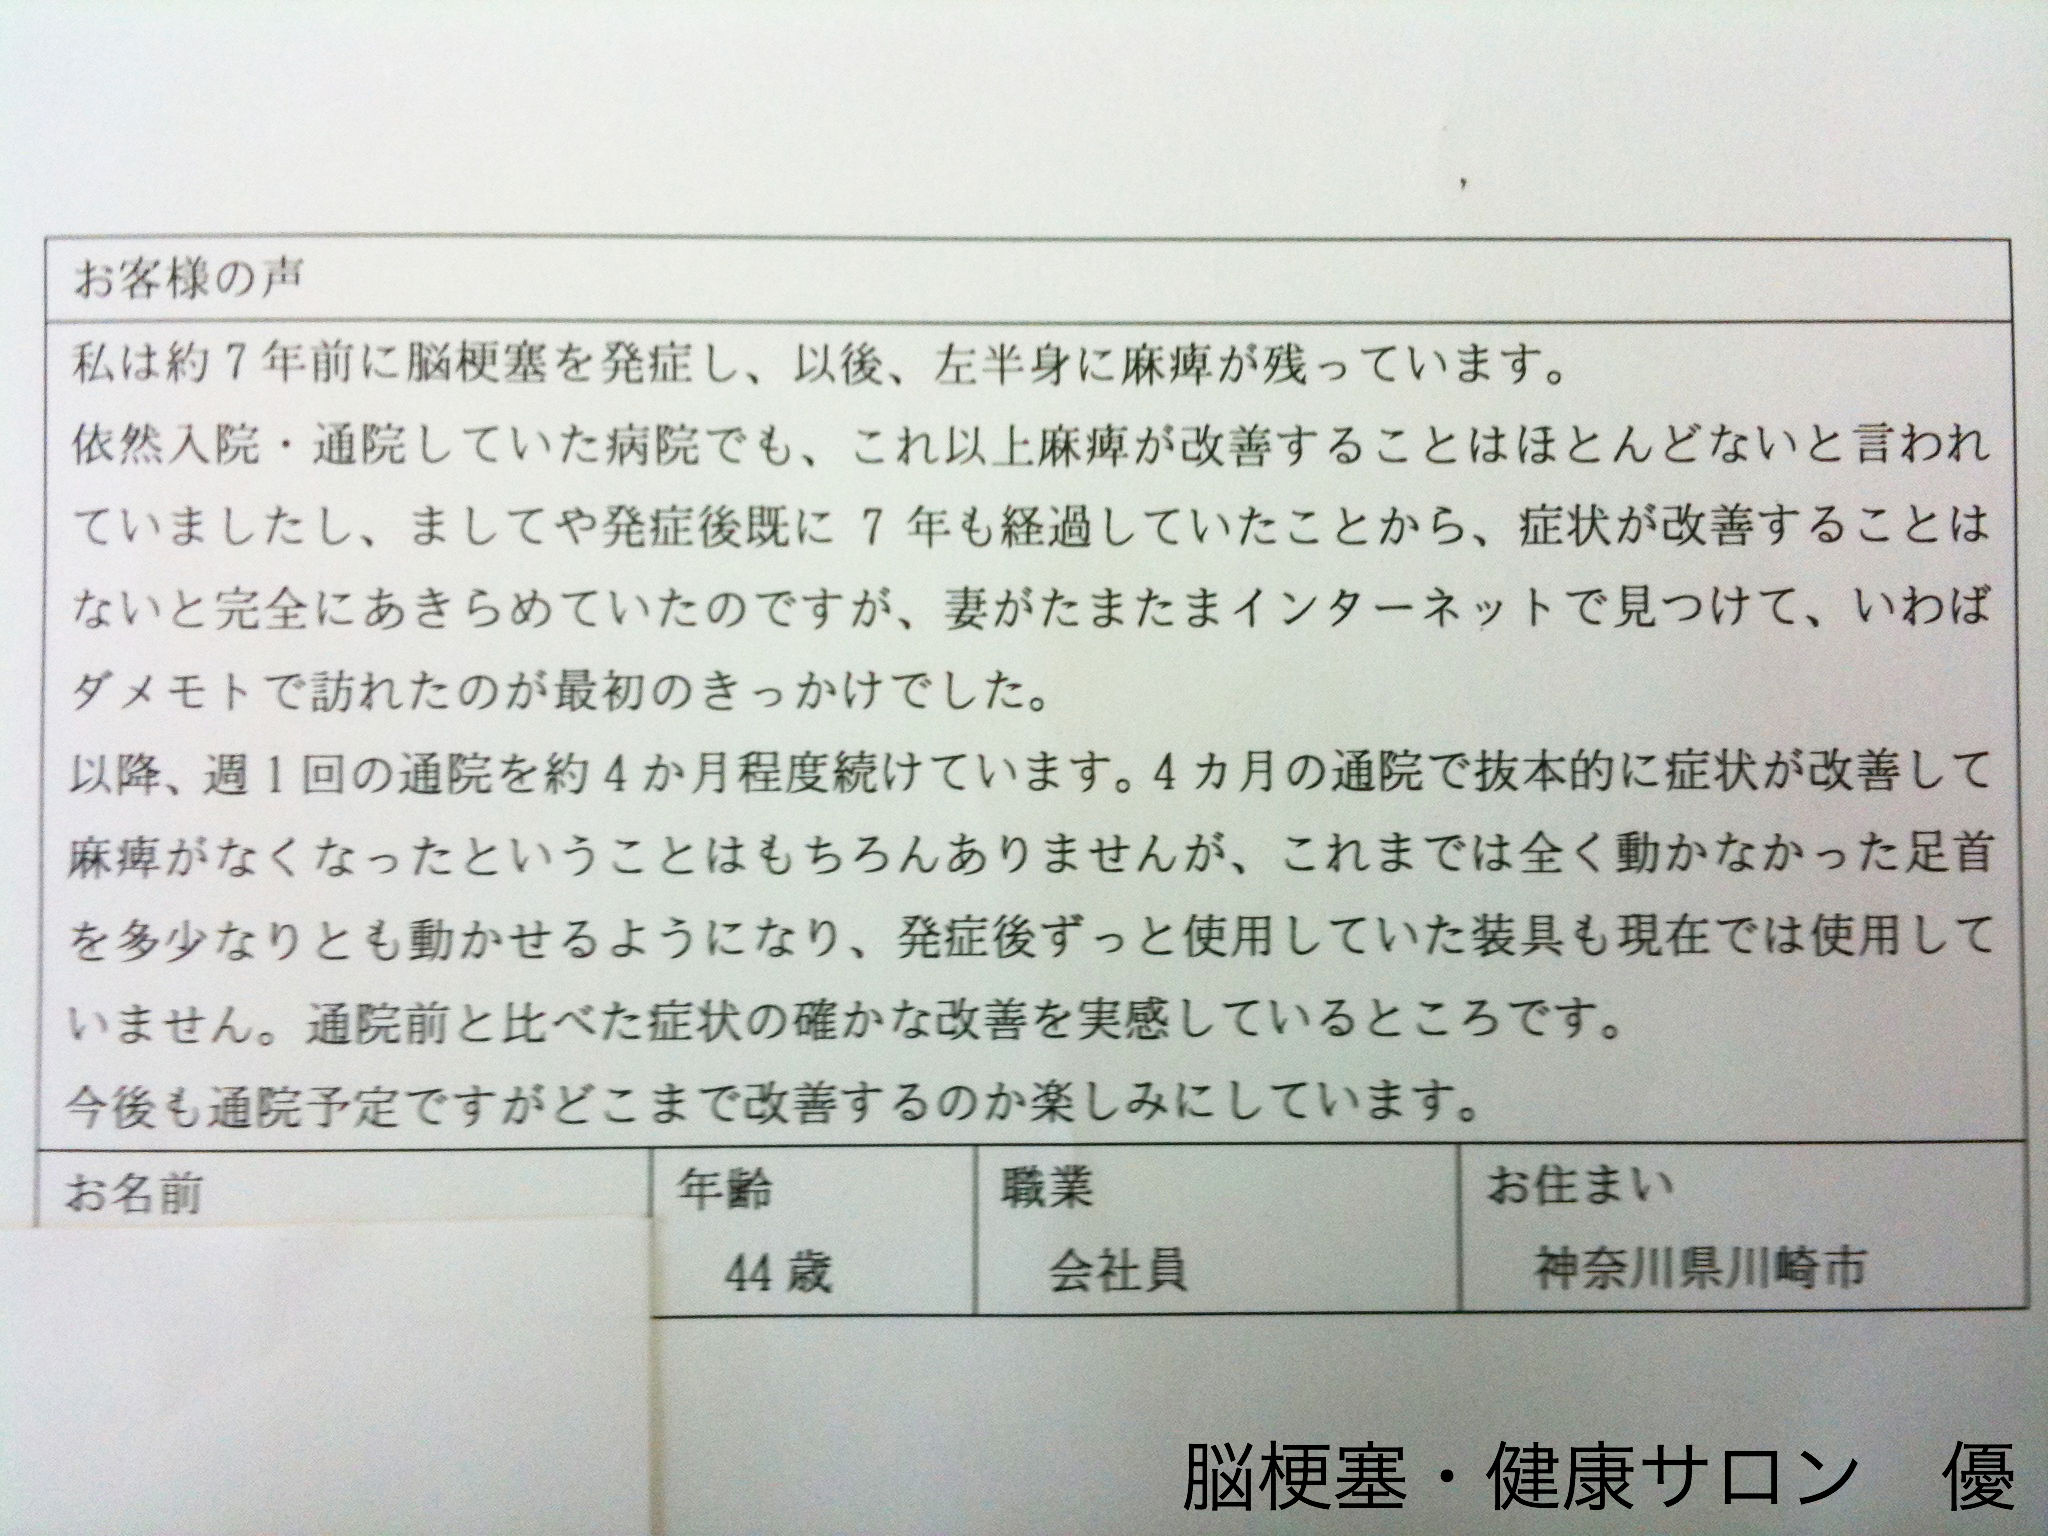 お客様の声
私は約7年前に脳梗塞を発症し、以後、左半身に麻痺が残っています。
依然入院・通院していた病院でも、これ以上麻痺が改善することはほとんどないと言われ
ていましたし、ましてや発症後既に 7 年も経過していたことから、症状が改善することは
ないと完全にあきらめていたのですが、妻がたまたまインターネットで見つけて、いわば
ダメモトで訪れたのが最初のきっかけでした。
以降、週1回の通院を約4か月程度続けています。4カ月の通院で抜本的に症状が改善して
麻痺がなくなったということはもちろんありませんが、これまでは全く動かなかった足首
を多少なりとも動かせるようになり、発症後ずっと使用していた装具も現在では使用して
いません。通院前と比べた症状の確かな改善を実感しているところです。
今後も通院予定ですがどこまで改善するのか楽しみにしています。
お名前 年齢 職業 お住まい
44歳 会社員 神奈川県川崎市
脳梗塞・健康サロン 優